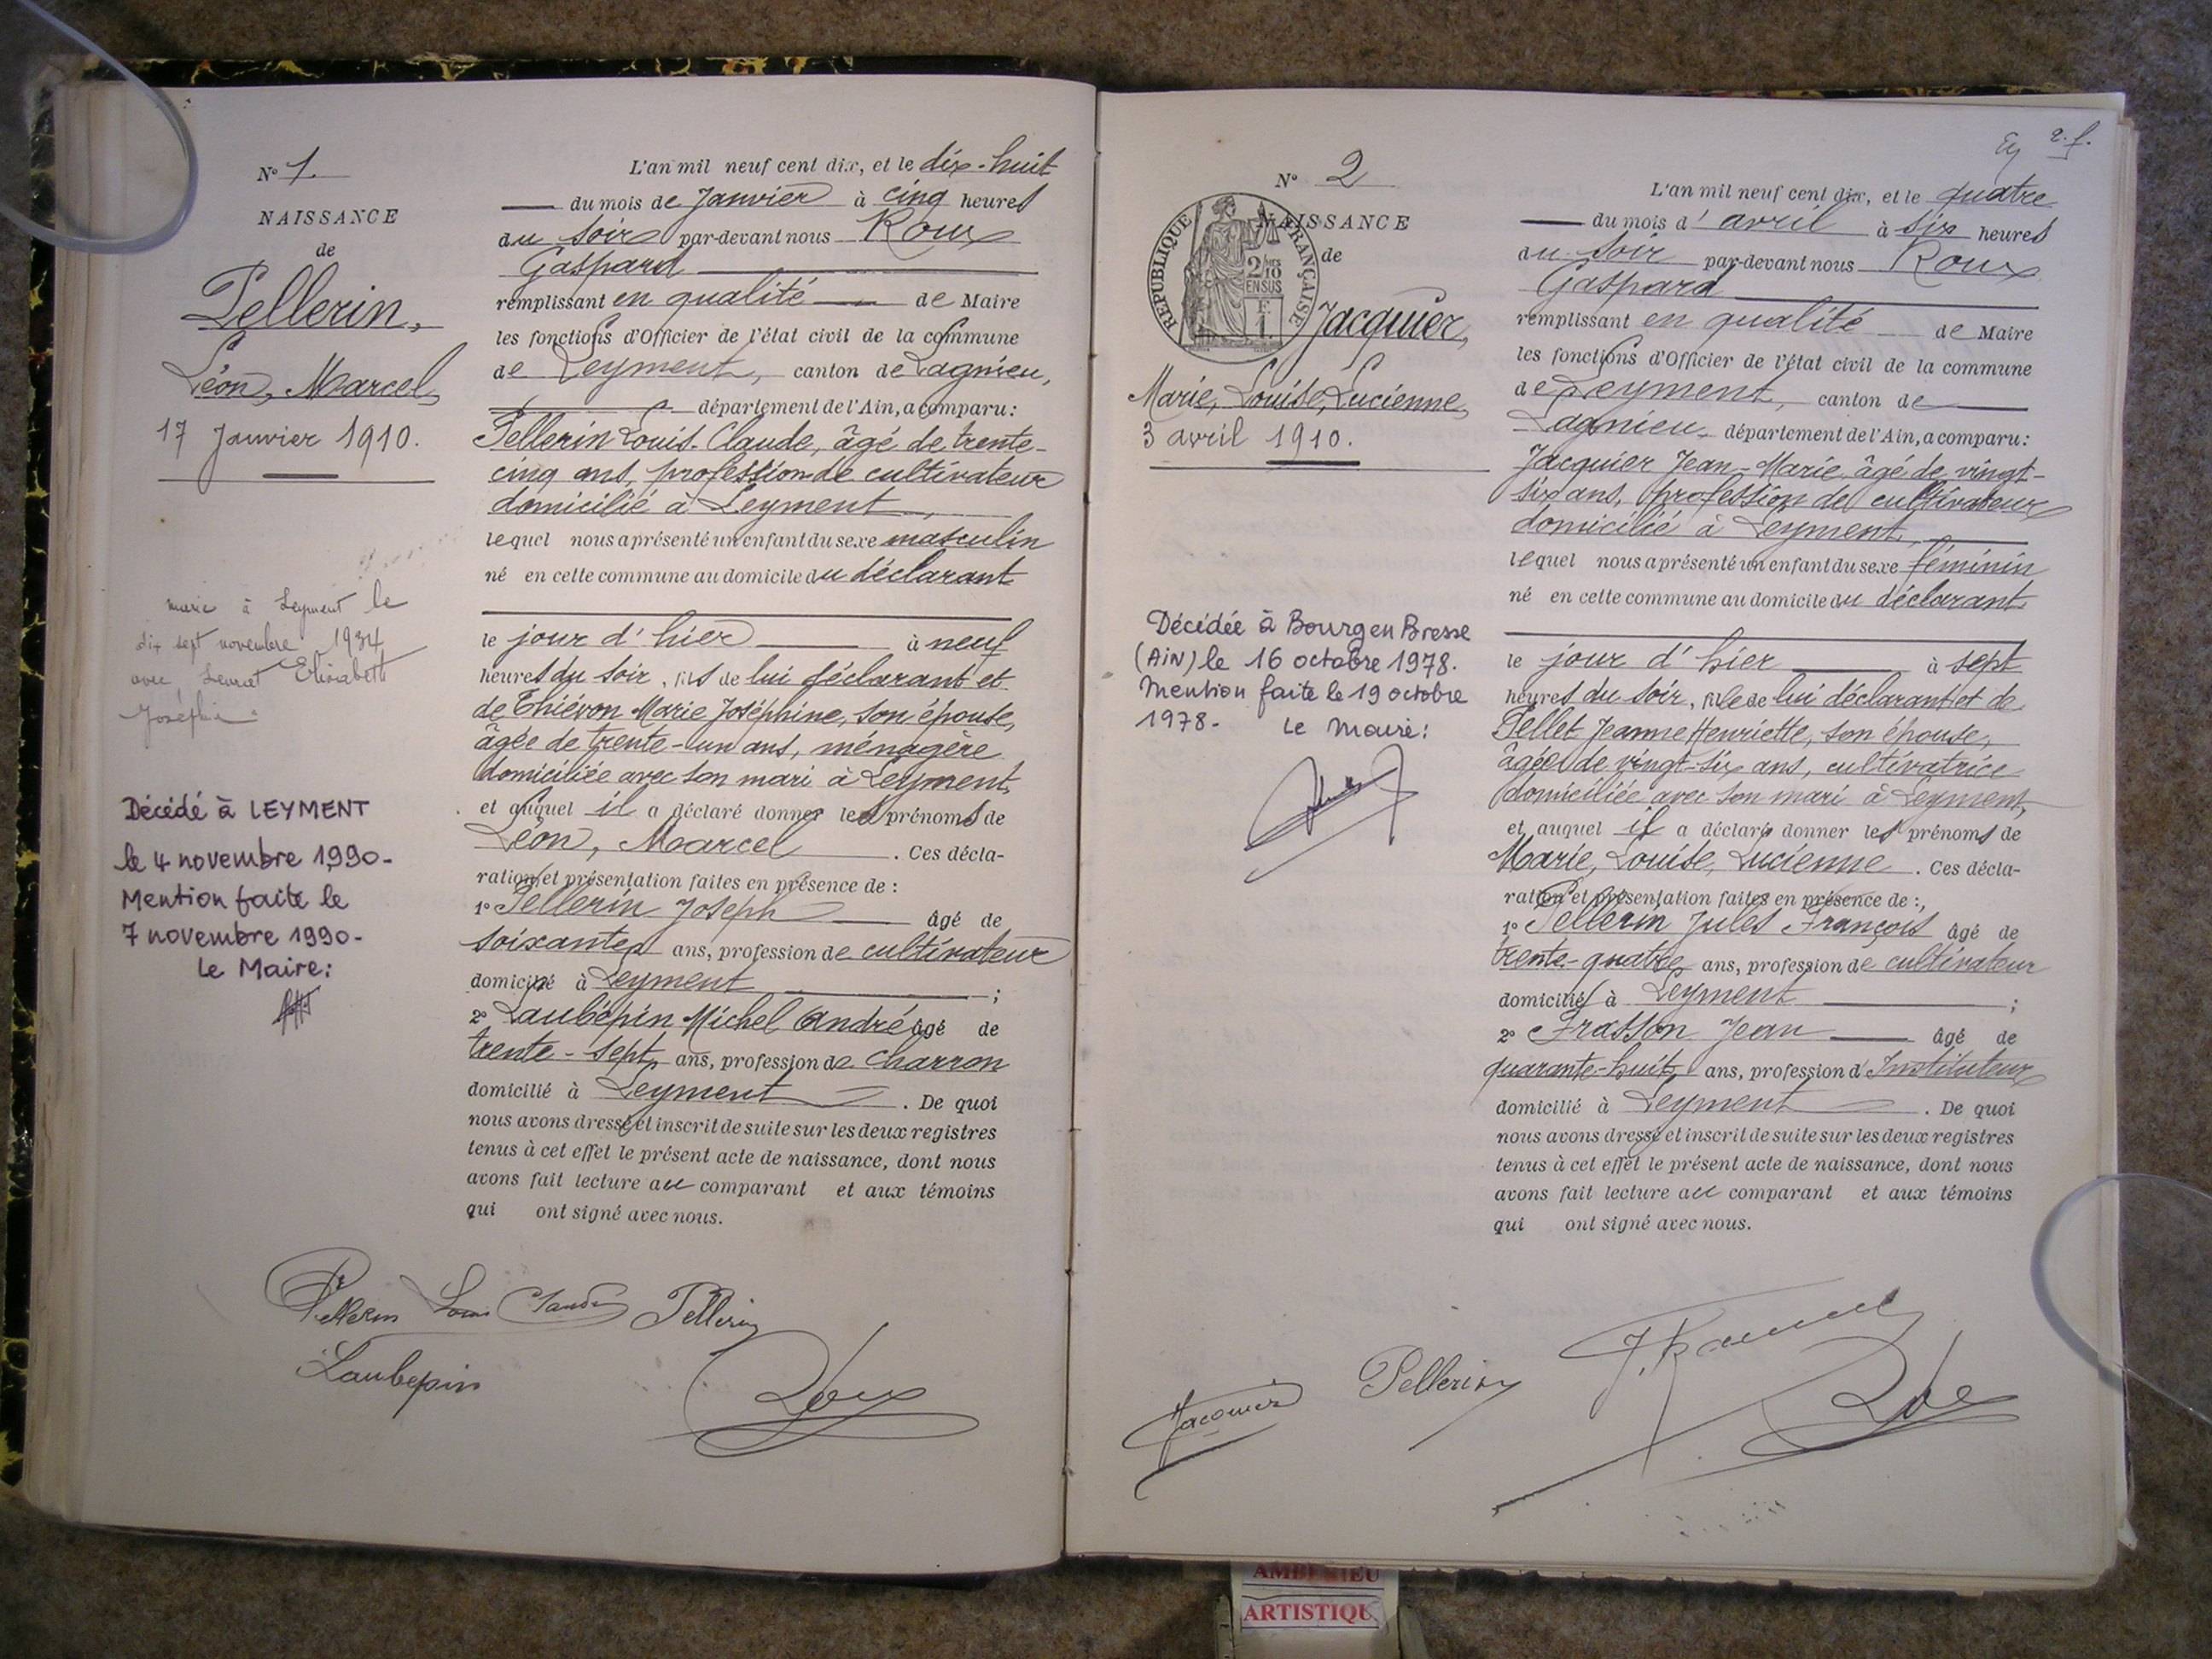 N° 1.
NAISSANCE
de
Pellerin,
Léon, Marcel,
17 Janvier 1910.
marié à Leyment le
dix sept novembre 1934
avec Elisabeth
Joséphine
Décédé à LEYMENT
le 4 novembre 1990-
Mention faite le
7 novembre 1990-
Le Maire:
L'an mil neuf cent dix, et le dix-huit
du mois de Janvier à cinq heures
du soir par-devant nous Roux
Gaspard
remplissant en qualité de Maire
les fonctions d'Officier de l'état civil de la commune
de Leyment, canton de Lagnieu,
département de l'Ain, a comparu:
Pellerin Louis-Claude, âgé de trente-
cinq ans, profession de cultivateur
domicilié à Leyment,
lequel nous a présenté un enfant du sexe masculin
né en cette commune au domicile du déclarant
le jour d'hier à neuf
heures du soir, fils de lui déclarant et
de Thiévon Marie Joséphine, son épouse,
âgée de trente-un ans, ménagère
domiciliée avec son mari à Leyment,
et auquel il a déclaré donner les prénoms de
Léon, Marcel. Ces décla-
ration et présentation faites en présence de :
1° Pellerin Joseph âgé de
soixante ans, profession de cultivateur
domicilié à Leyment ;
2° Laubépin Michel André âgé de
trente-sept ans, profession de charron
domicilié à Leyment. De quoi
nous avons dressé et inscrit de suite sur les deux registres
tenus à cet effet le présent acte de naissance, dont nous
avons fait lecture au comparant et aux témoins
qui ont signé avec nous.
Pellerin Louis Claude Pellerin
Laubepin Roux
2. f.
N° 2
NAISSANCE
de
REPUBLIQUE FRANÇAISE
2/10
EN SUS
F.
1.
Jacquier,
Marie, Louise, Lucienne,
3 avril 1910.
Décédée à Bourg en Bresse
(AiN) le 16 octobre 1978.
Mention faite le 19 octobre
1978- Le Maire:
L'an mil neuf cent dix, et le quatre
du mois d'avril à six heures
du soir par-devant nous Roux
Gaspard
remplissant en qualité de Maire
les fonctions d'Officier de l'état civil de la commune
de Leyment, canton de
Lagnieu, département de l'Ain, a comparu:
Jacquier Jean-Marie âgé de vingt-
six ans, profession de cultivateur
domicilié à Leyment,
lequel nous a présenté un enfant du sexe féminin
né en cette commune au domicile du déclarant
le jour d'hier à sept
heures du soir, fille de lui déclarant et de
Pellet Jeanne Henriette, son épouse,
âgée de vingt-six ans, cultivatrice
domiciliée avec son mari à Leyment,
et auquel il a déclaré donner les prénoms de
Marie, Louise, Lucienne. Ces décla-
ration et présentation faites en présence de :
1° Pellerin Jules François âgé de
trente-quatre ans, profession de cultivateur
domicilié à Leyment ;
2° Frasson Jean âgé de
quarante-huit ans, profession d'Instituteur
domicilié à Leyment. De quoi
nous avons dressé et inscrit de suite sur les deux registres
tenus à cet effet le présent acte de naissance, dont nous
avons fait lecture au comparant et aux témoins
qui ont signé avec nous.
Jacquier Pellerin
AMBERIEU
ARTISTIQU